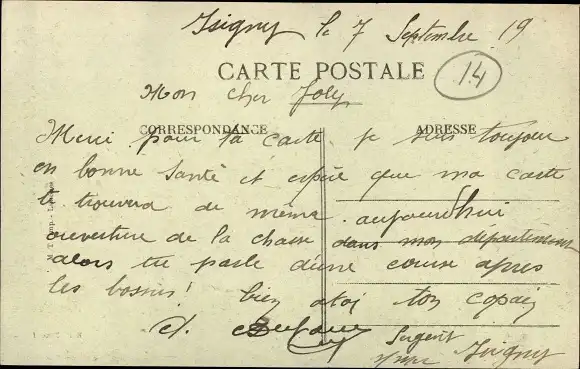 Isigny le 7 Septembre 19
14
CARTE POSTALE
Mon cher Joly
CORRESPONDANCE
ADRESSE
Merci pour ta carte. je suis toujour
en bonne santé et espère que ma carte
te trouvera de même. aujourd'hui
ouverture de la chasse dans mon département
alors tu parle d'une course apres
les bossus! bien a toi ton copain
Sergent
Isigny